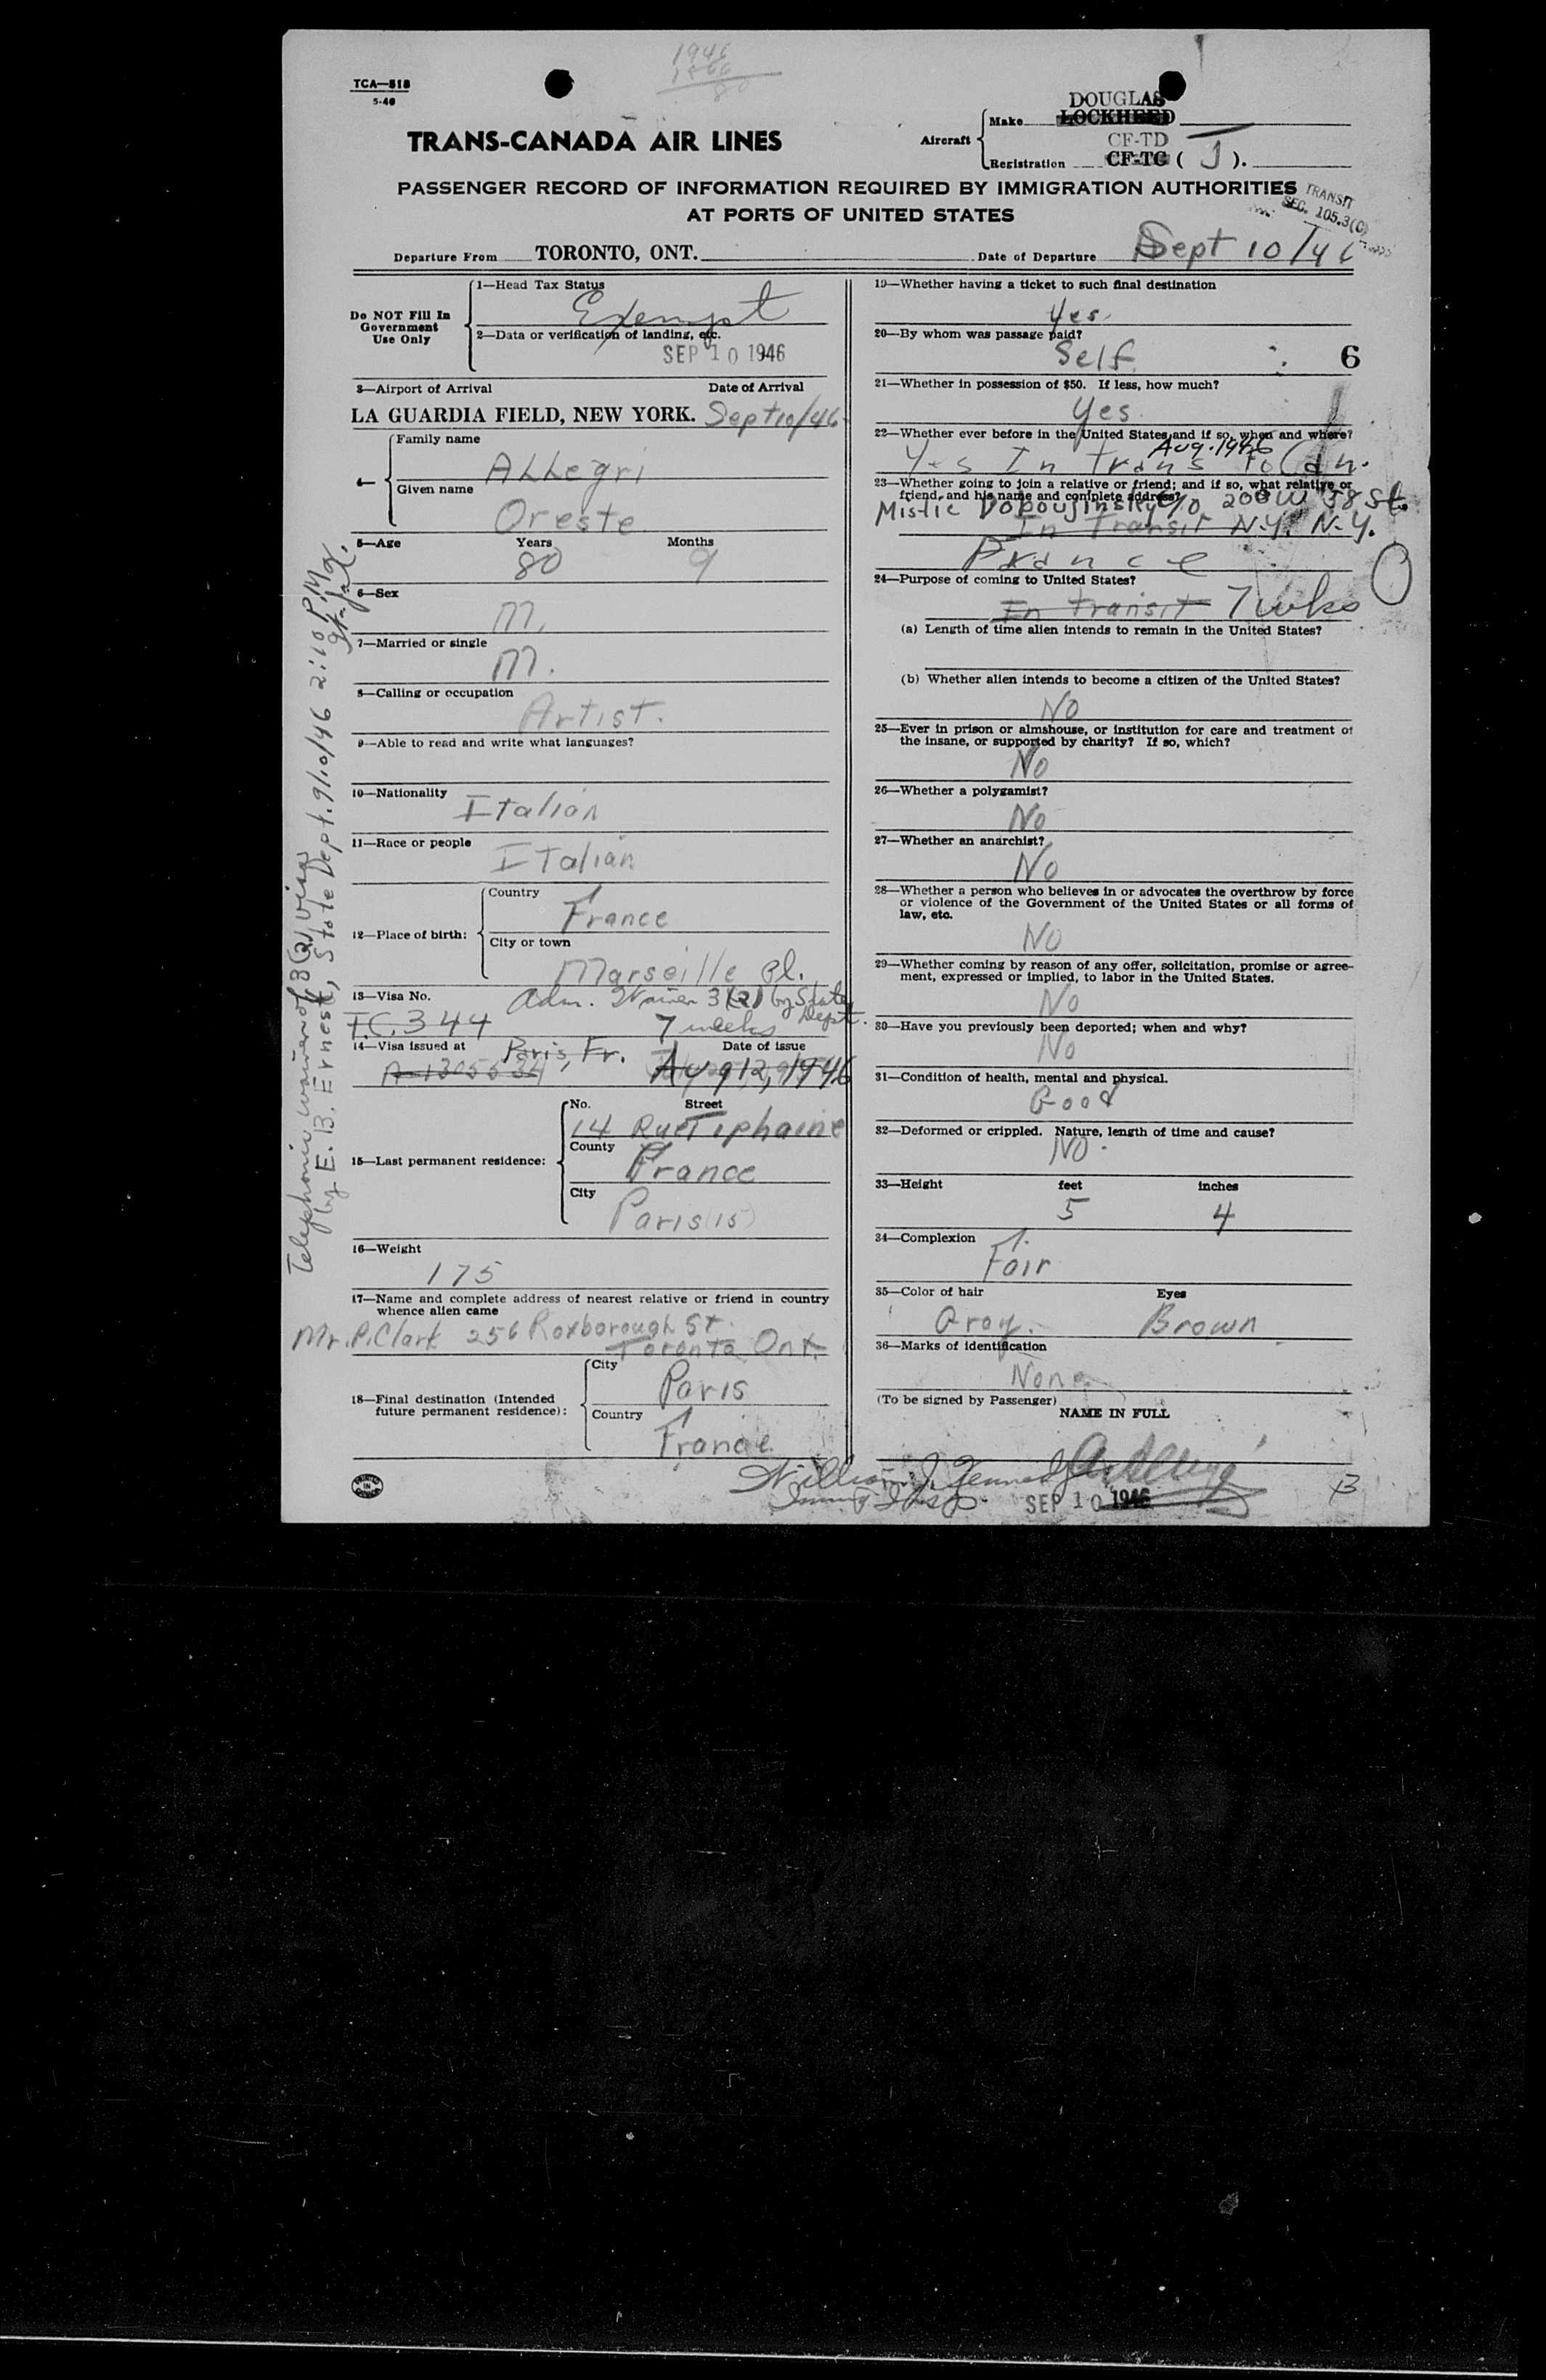 1946
TCA—518
5-46
DOUGLAS
Make LOCKHEED
TRANS-CANADA AIR LINES
Aircraft
CF-TD
Registration CF-TG ( J ).
PASSENGER RECORD OF INFORMATION REQUIRED BY IMMIGRATION AUTHORITIES
AT PORTS OF UNITED STATES
TRANSIT
SEC. 105.3(C)
Departure From TORONTO, ONT. Date of Departure Sept 10/46
Do NOT Fill In
Government
Use Only
1—Head Tax Status
Exempt
2—Data or verification of landing, etc.
SEP 10 1946
3—Airport of Arrival Date of Arrival
LA GUARDIA FIELD, NEW YORK. Sept 10/46
4—
Family name
ALLegri
Given name
Oreste
5—Age Years Months
80 9
6—Sex
M.
7—Married or single
M.
8—Calling or occupation
Artist.
9—Able to read and write what languages?
10—Nationality
Italian
11—Race or people
Italian
12—Place of birth:
Country
France
City or town
Marseille
13—Visa No.
Adm. Waiver 3(2) by State Dept.
T.C. 344 7 weeks
14—Visa issued at Paris, Fr. Date of issue
Aug 12, 1946
15—Last permanent residence:
No. Street
14 Rue Tiphaine
County
France
City
Paris (15)
16—Weight
175
17—Name and complete address of nearest relative or friend in country
whence alien came
Mr. P. Clark 256 Roxborough St.
Toronto Ont.
18—Final destination (Intended
future permanent residence):
City
Paris
Country
France
PRINTED IN CANADA
Telephonic waiver of 3(2) Visa
by E. B. Ernest, State Dept. 9/10/46 2:10 P.M.
19—Whether having a ticket to such final destination
Yes.
20—By whom was passage paid?
Self 6
21—Whether in possession of $50. If less, how much?
Yes.
22—Whether ever before in the United States and if so, when and where?
Aug. 1946
Yes In Trans to Can.
23—Whether going to join a relative or friend; and if so, what relative or
friend, and his name and complete address?
Mistic Doboujinsky c/o 200 W 58 St.
In Transit N.Y. N.Y.
France
24—Purpose of coming to United States?
In Transit 7 wks
(a) Length of time alien intends to remain in the United States?
(b) Whether alien intends to become a citizen of the United States?
No
25—Ever in prison or almshouse, or institution for care and treatment of
the insane, or supported by charity? If so, which?
No
26—Whether a polygamist?
No
27—Whether an anarchist?
No
28—Whether a person who believes in or advocates the overthrow by force
or violence of the Government of the United States or all forms of
law, etc.
No
29—Whether coming by reason of any offer, solicitation, promise or agree-
ment, expressed or implied, to labor in the United States.
No
30—Have you previously been deported; when and why?
No
31—Condition of health, mental and physical.
Good
32—Deformed or crippled. Nature, length of time and cause?
No.
33—Height feet inches
5 4
34—Complexion
Fair
35—Color of hair Eyes
Gray. Brown
36—Marks of identification
None
(To be signed by Passenger)
NAME IN FULL
William J. Kennedy
Immig Insp.
SEP 10 1946